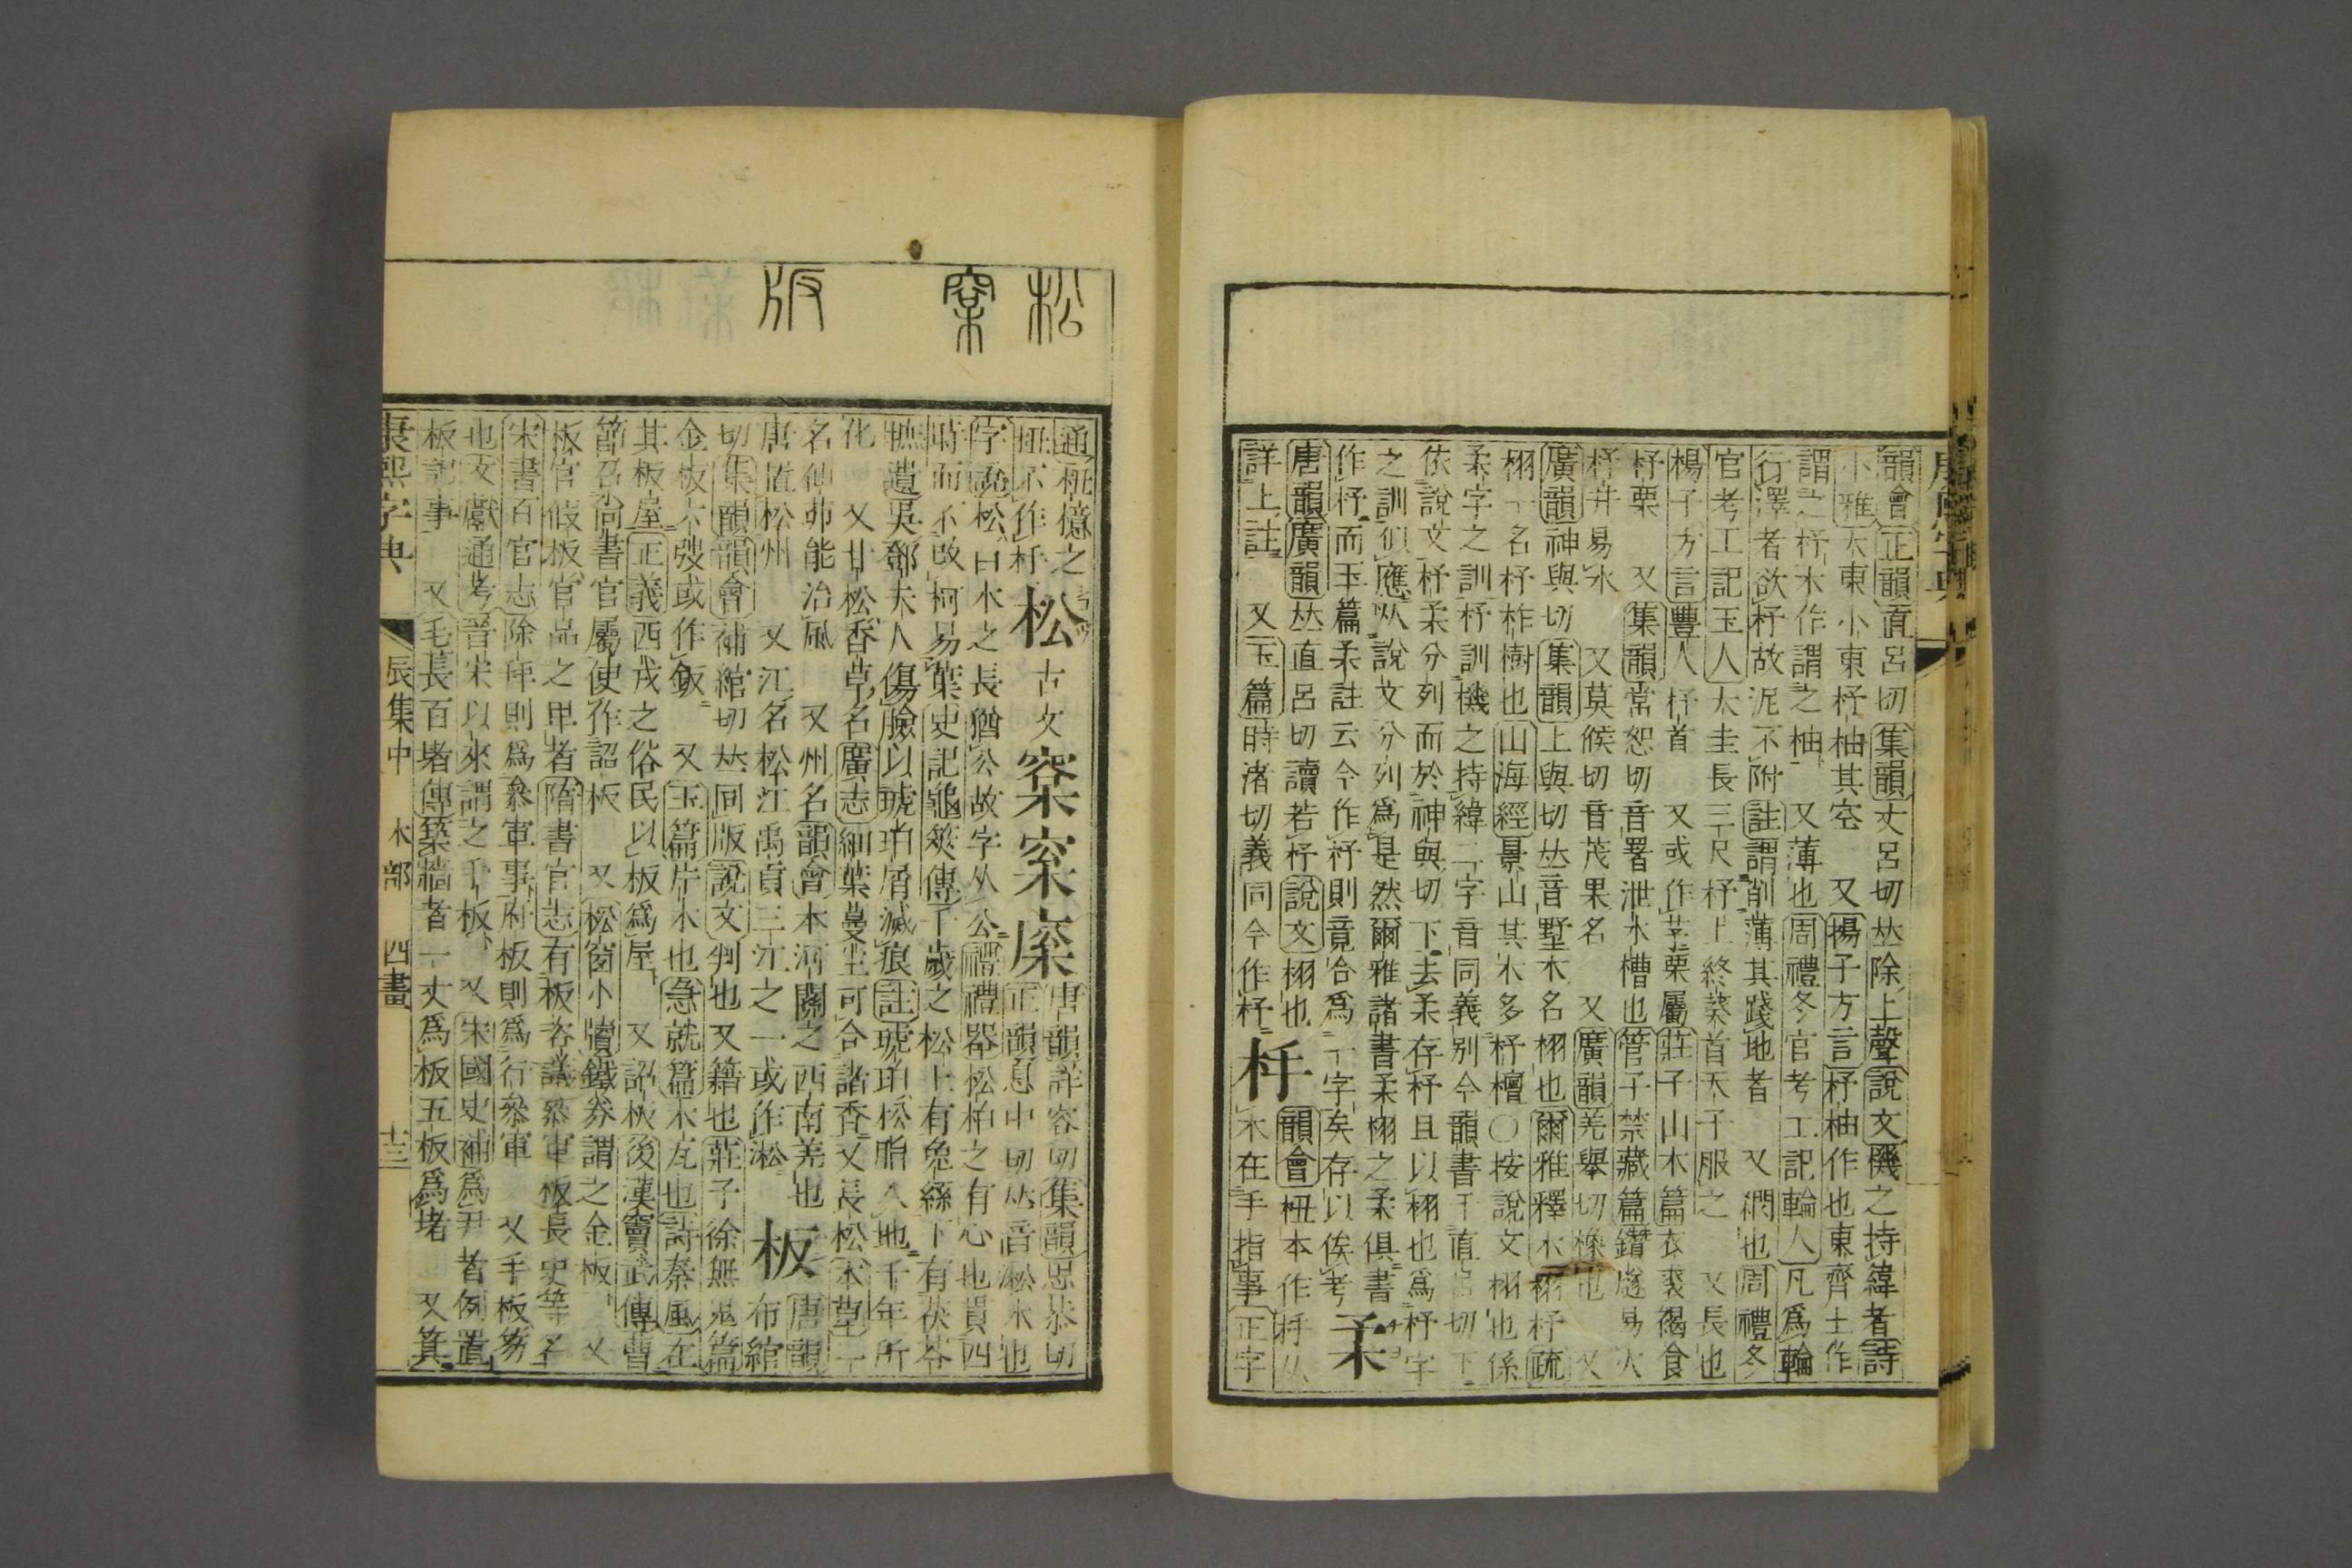 韻會正韻直呂切集韻丈呂切𠀤除上聲說文機之持緯者詩
小雅大東小東杼柚其空　又揚子方言杼柚作也東齊土作
謂之杼木作謂之柚　又薄也周禮冬官考工記輪人凡爲輪
行澤者欲杼故泥不附註謂削薄其踐地者　又網也周禮冬
官考工記玉人大圭長三尺杼上終葵首天子服之　又長也
楊子方言豐人杼首　又或作芧栗屬莊子山木篇衣裘褐食
杼栗　又集韻常恕切音署泄水槽也管子禁藏篇鑽燧易火
杼井易水　又莫候切音茂果名　又廣韻羌舉切橡也　又
廣韻神與切集韻上與切𠀤音墅木名栩也爾雅釋木栩杼疏
栩一名杼柞樹也山海經景山其木多杼檀○按說文栩也係
柔字之訓杼訓機之持緯二字音同義别今韻書于直呂切下
依說文杼柔分列而於神與切下去柔存杼且以栩也爲杼字
之訓似應从說文分列爲是然爾雅諸書柔栩之柔俱書
作杼而玉篇柔註云今作杼則竟合爲一字矣存以俟考　柔
唐韻廣韻𠀤直呂切讀若杼說文栩也
詳上註　又玉篇時渚切義同今作杼　杽　韻會杻本作杽从
木在手指事正字
松　㮤　版
通杻檍之
杻不作杽　松　古文　㮤　㮤　庺　唐韻詳容切集韻思恭切
正韻息中切𠀤音淞木也
字說松百木之長猶公故字从公禮禮器松柏之有心也貫四
時而不改柯易葉史記龜筴傳千歲之松上有兔絲下有茯苓
拾遺吳鄧夫人傷臉以琥珀屑滅痕註琥珀松脂入地千年所
化　又甘松香草名廣志細葉蔓生可合諸香又長松本草一
名仙茆能治風　又州名韻會本河關之西南羌也
唐置松州　又江名松江禹貢三江之一或作淞　板　唐韻
布綰
切集韻韻會補綰切𠀤同版說文判也又籍也莊子徐無鬼篇
金板六弢或作鈑　又玉篇片木也急就篇木瓦也詩秦風在
其板屋正義西戎之俗民以板爲屋　又詔板後漢竇武傳曹
節召尚書官屬使作詔板　又松窗小牘鐵券謂之金板　又
板官假板官品之卑者隋書官志有板咨議參軍板長史等名
宋書百官志除拜則爲參軍事府板則爲行參軍　又手板笏
也文獻通考晉宋以來謂之手板　又朱國史補爲尹者例置
板記事　又毛萇百堵傳築牆者一丈爲板五板爲堵　又箕
康熙字典　辰集中　木部　四畫　十三